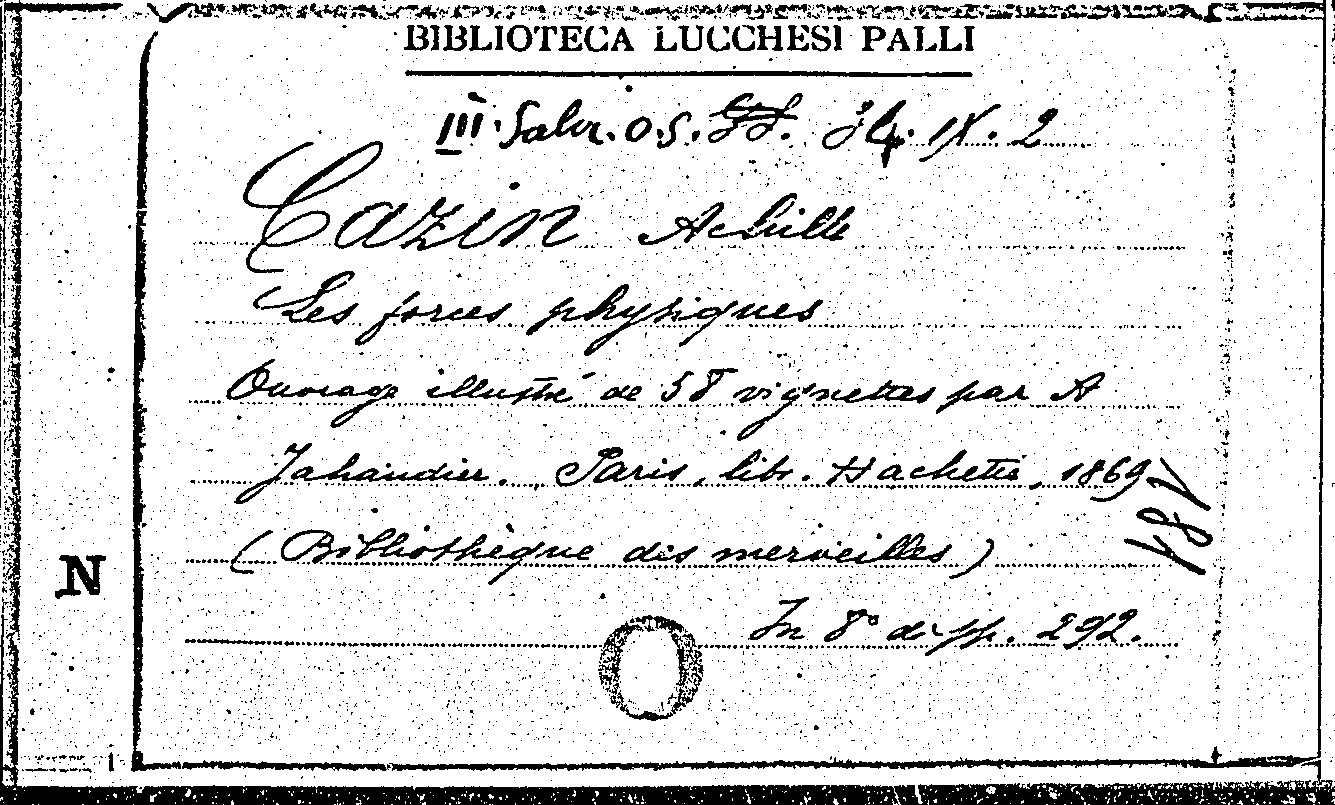 BIBLIOTECA LUCCHESI PALLI
III. Salr. O.S. IX. 2
Cazin Achille
Les forces physiques
Ouvrage illustré de 58 vignettes par A
Jahandier. Paris, lib. Hachette, 1869
(Bibliothèque des merveilles)
In 8° di pp. 292.
N